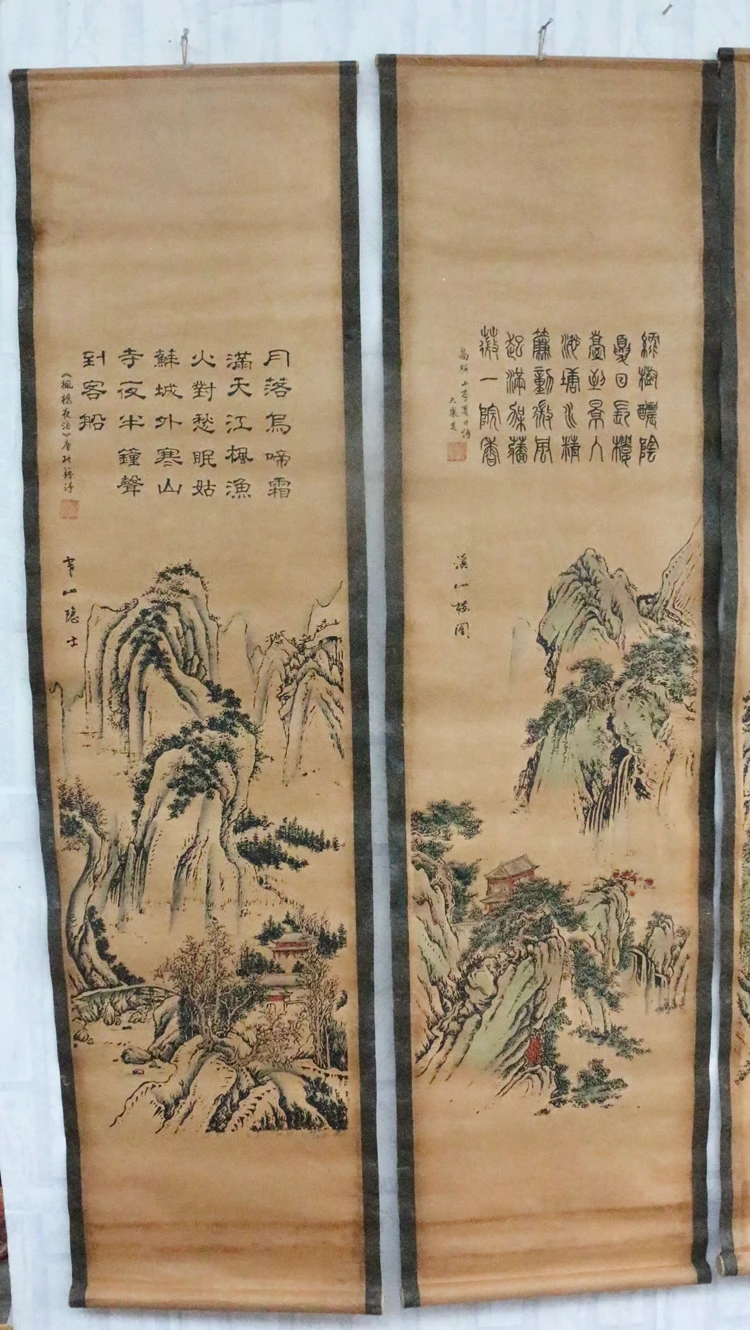 月落烏啼霜
滿天江楓漁
火對愁眠姑
蘇城外寒山
寺夜半鐘聲
到客船
《楓橋夜泊》唐張繼詩
寒山隐士
綠樹醲陰
夏日長樓
臺到景入
池塘水精
簾動微風
起滿架薔
薇一院香
高駢山亭夏日詩
溪山樓閣